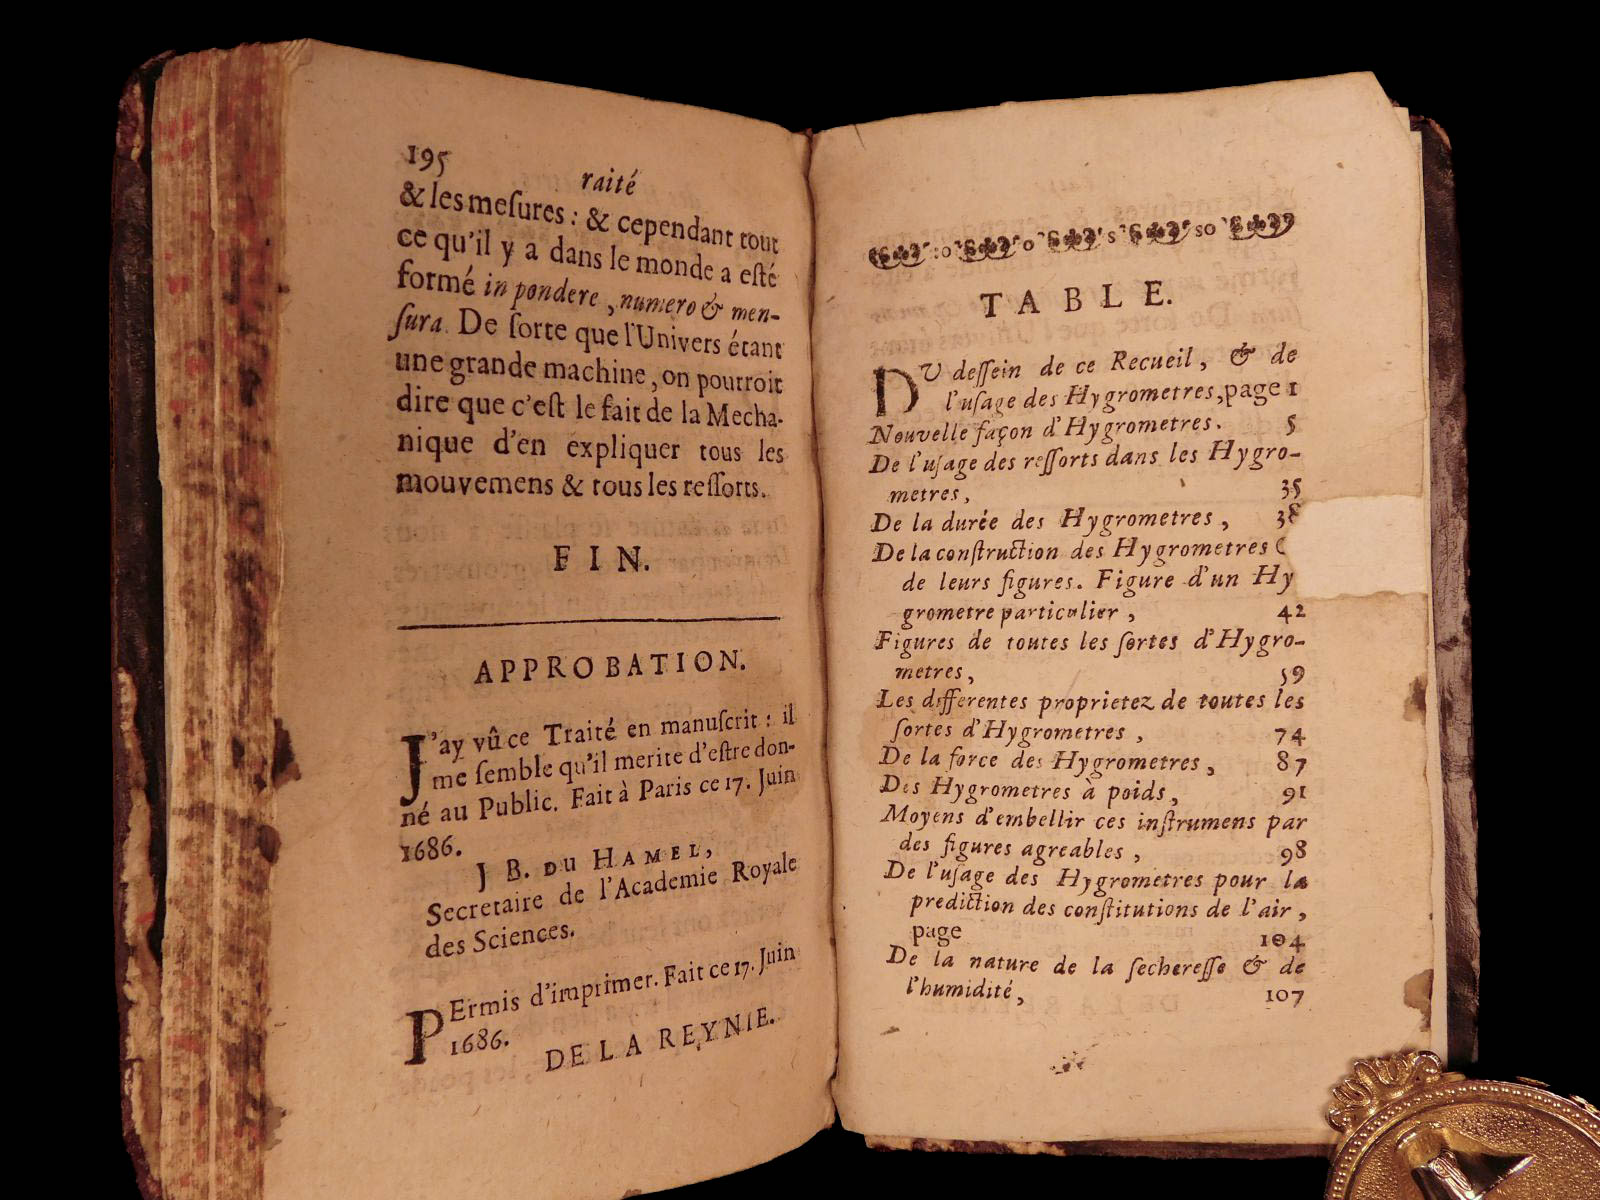 195
raité
& les meſures : & cependant tout
ce qu'il y a dans le monde a eſté
formé in pondere, numero & men-
ſura. De ſorte que l'Univers étant
une grande machine, on pourroit
dire que c'eſt le fait de la Mecha-
nique d'en expliquer tous les
mouvemens & tous les reſſorts.
FIN.
APPROBATION.
J'ay vû ce Traité en manuſcrit : il
me ſemble qu'il merite d'eſtre don-
né au Public. Fait à Paris ce 17. Juin
1686.
J B. DU HAMEL,
Secretaire de l'Academie Royale
des Sciences.
PErmis d'imprimer. Fait ce 17. Juin
1686.
DE LA REYNIE.
TABLE.
DU deſſein de ce Recueil, & de
l'uſage des Hygrometres, page 1
Nouvelle façon d'Hygrometres. 5
De l'uſage des reſſorts dans les Hygro-
metres, 35
De la durée des Hygrometres, 38
De la conſtruction des Hygrometres
de leurs figures. Figure d'un Hy
grometre particulier, 42
Figures de toutes les ſortes d'Hygro-
metres, 59
Les differentes proprietez de toutes les
ſortes d'Hygrometres, 74
De la force des Hygrometres, 87
Des Hygrometres à poids, 91
Moyens d'embellir ces inſtrumens par
des figures agreables, 98
De l'uſage des Hygrometres pour la
prediction des conſtitutions de l'air,
page 104
De la nature de la ſechereſſe & de
l'humidité, 107